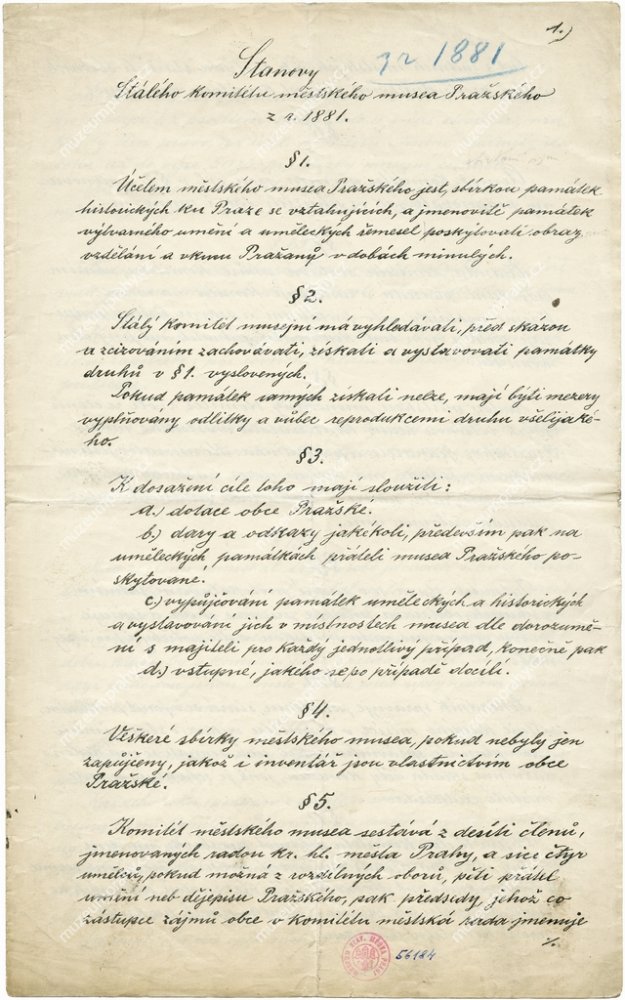 1.)
z r 1881
Stanovy
Stálého komitétu městského musea Pražského
z r. 1881.
§ 1.
Účelem městského musea Pražského jest, sbírkou památek
historických ku Praze se vztahujících, a jmenovitě památek
výtvarného umění a uměleckých řemesel poskytovati obraz
vzdělání a vkusu Pražanů v dobách minulých.
§ 2.
Stálý komitét musejní má vyhledávati, před zkázou
a zcizováním zachovávati, získati a vystavovati památky
druhů v § 1. vyslovených.
Pokud památek samých získati nelze, mají býti mezery
vyplňovány odlitky a vůbec reprodukcemi druhu všelijaké-
ho.
§ 3.
K dosažení cíle toho mají sloužiti:
a.) dotace obce Pražské.
b.) dary a odkazy jakékoli, především pak na
uměleckých památkách přáteli musea Pražského po-
skytované.
c.) vypůjčování památek uměleckých a historických
a vystavování jich v místnostech musea dle dorozumě-
ní s majiteli pro každý jednotlivý případ, konečně pak
d.) vstupné, jakého se po případě docílí.
§ 4.
Veškeré sbírky městského musea, pokud nebyly jen
zapůjčeny, jakož i inventář jsou vlastnictvím obce
Pražské.
§ 5.
Komitét městského musea sestává z desíti členů,
jmenovaných radou kr. hl. města Prahy, a sice čtyr
umělců, pokud možná z rozdílných oborů, pěti přátel
umění neb dějepisu Pražského, pak předsedy, jehož co
zástupce zájmů obce v komitétu městská rada jmenuje
./.
56184